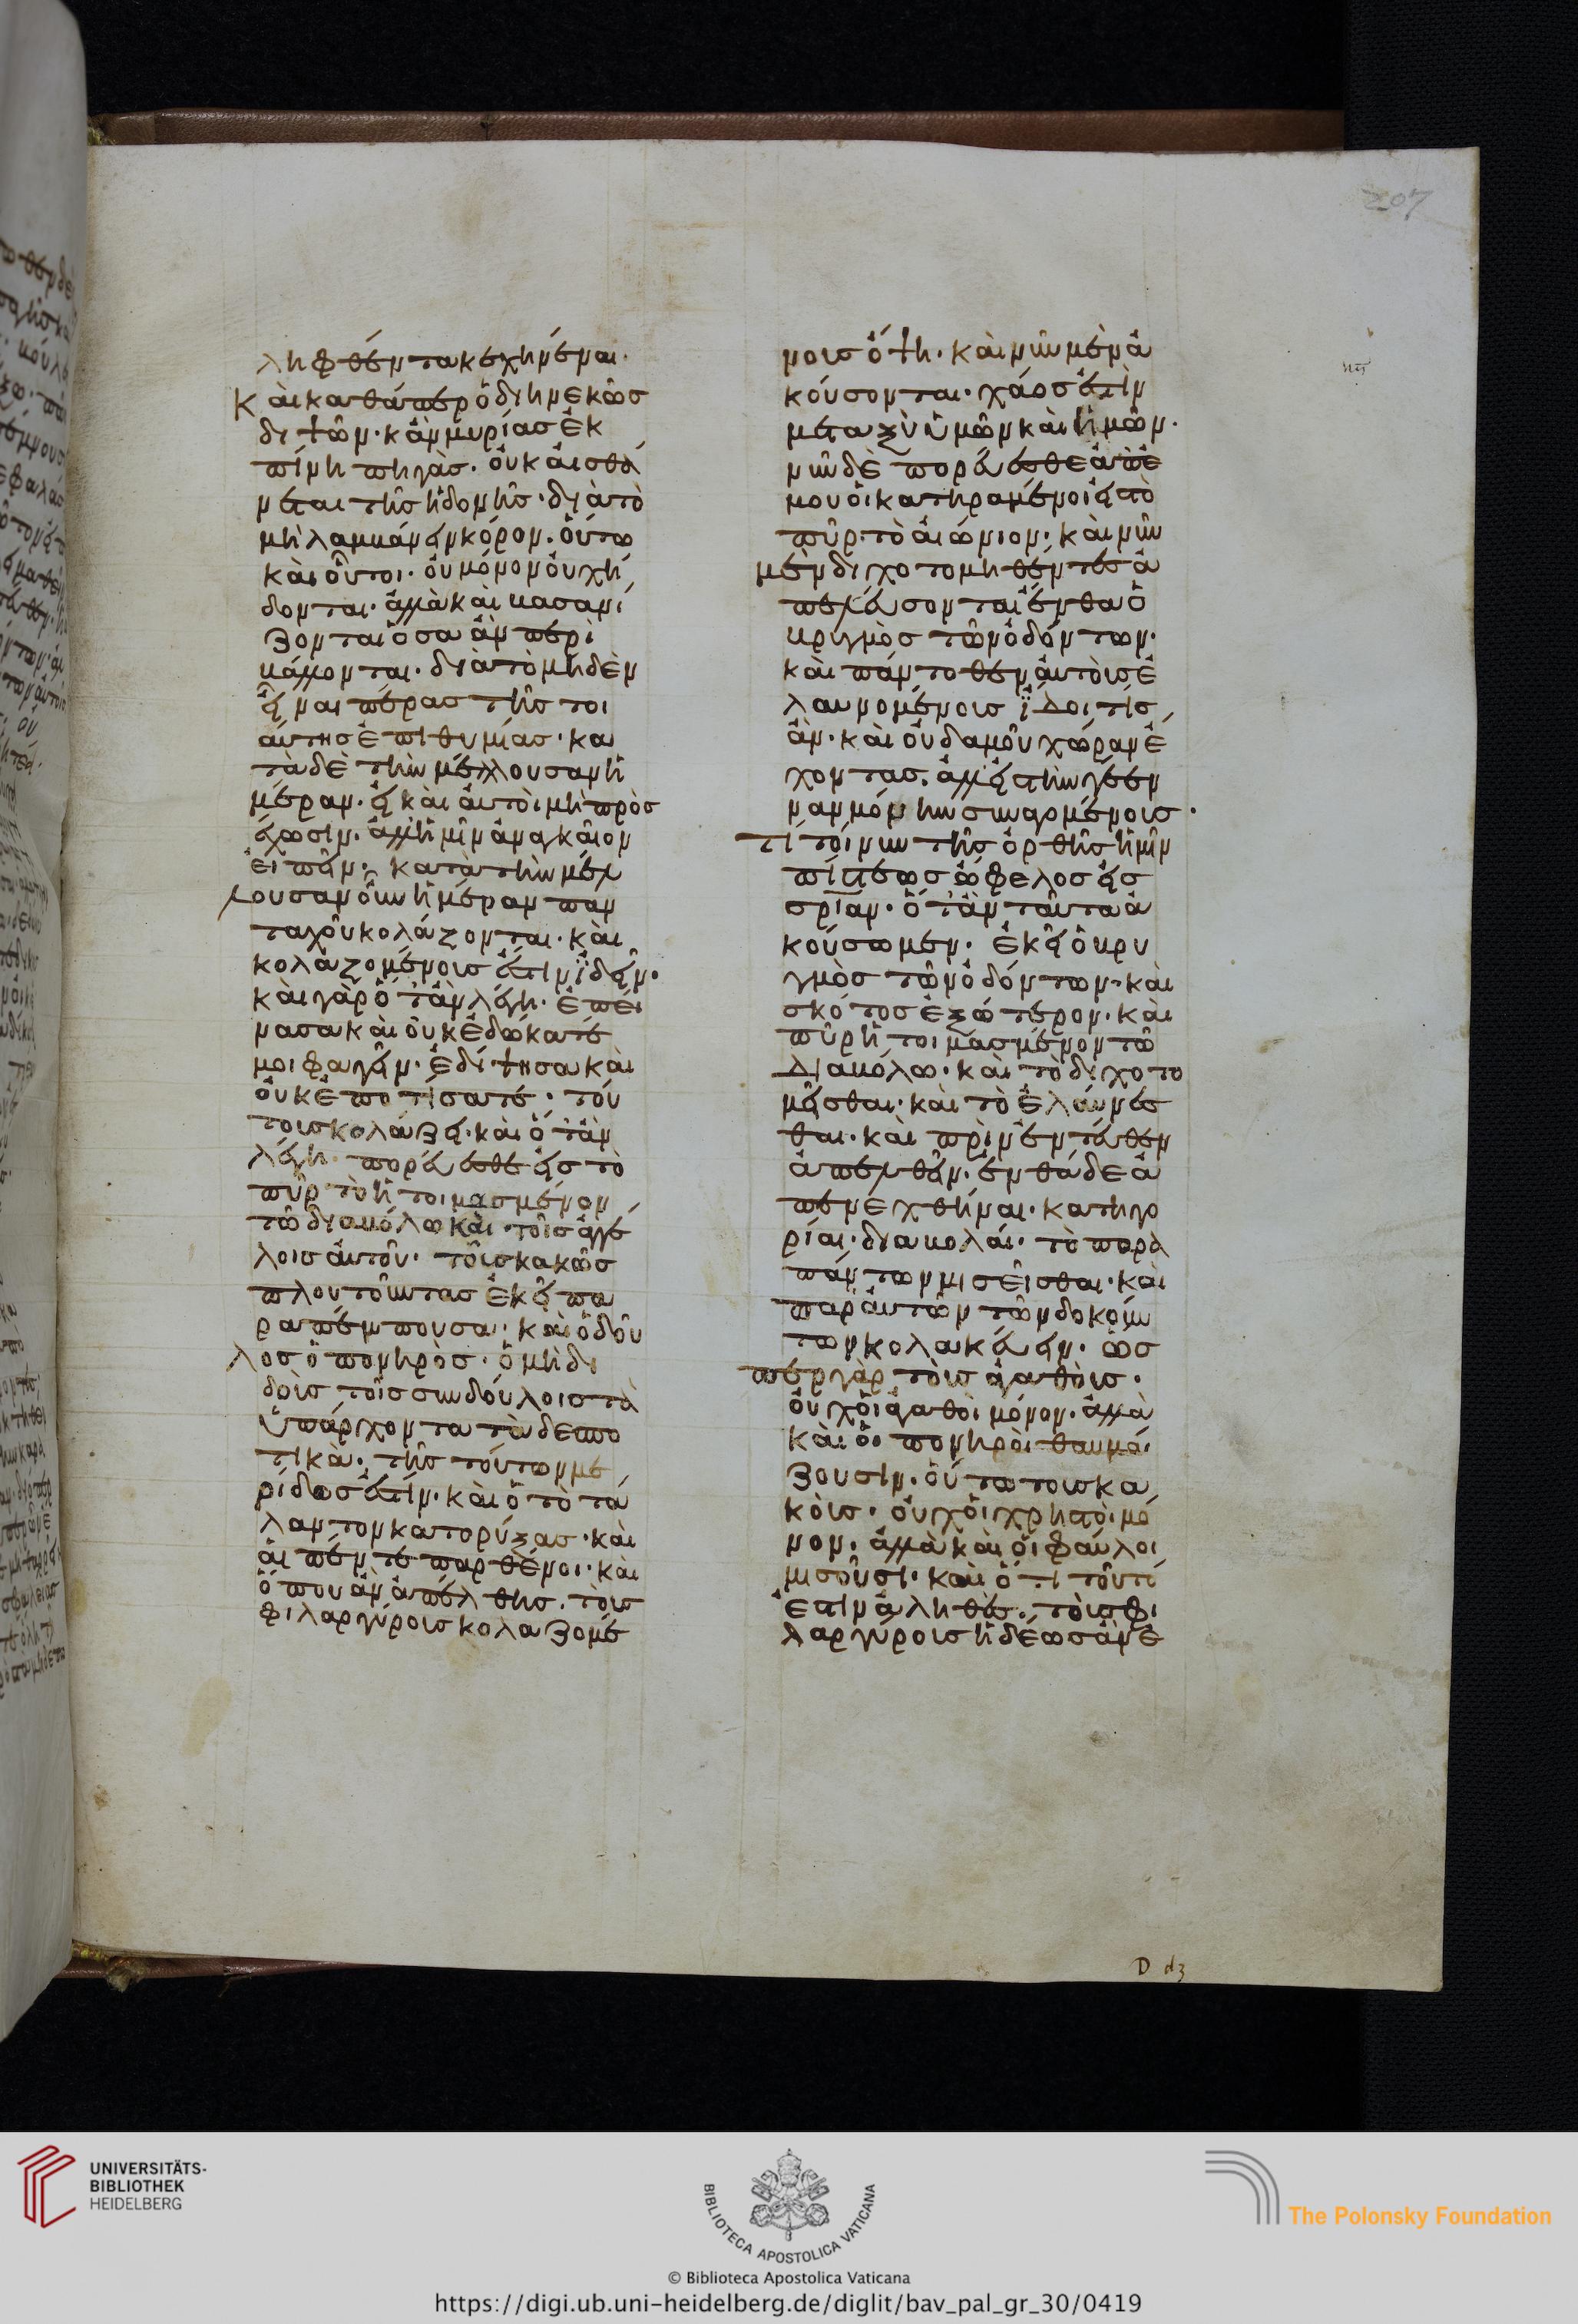 ληφθέντα κεχηνέναι·
Καὶ καθάπερ ὁ διηνεκῶσ
διψῶν· κἂν μυρίασ ἐκ
πίνη πηγὰσ· οὐκ αἰσθά
νεται τῆσ ἡδονῆσ· διὰ τὸ
μὴ λαμβάνειν κόρον· οὕτω
καὶ οὗτοι· οὐ μόνον οὐχ ἥ
δονται· ἀλλὰ καὶ βασανί
ζονται ὅσα ἂν περι
βάλλονται· διὰ τὸ μηδὲν
εἶναι πέρασ τῆσ τοι
αύτησ ἐπιθυμίασ· κα
τὰ δὲ τὴν μέλλουσαν ἡ
μέραν· εἰ καὶ αὐτοὶ μὴ προσ
έχωσιν· ἀλλ' ἡμῖν ἀναγκαῖον
εἰπεῖν· κατὰ τὴν μέλ
λουσαν οὖν ἡμέραν παν
ταχοῦ κολάζονται· καὶ
κολαζομένουσ ἔστιν ἰδεῖν·
καὶ γὰρ ὅταν λέγη· ἐπεί
νασα καὶ οὐκ ἐδώκατέ
μοι φαγεῖν· ἐδίψησα καὶ
οὐκ ἐποτίσατε· τού
τουσ κολάζει· καὶ ὅταν
λέγη· πορεύεσθε εἰσ τὸ
πῦρ τὸ ἡτοιμασμένον
τῶ διαβόλω καὶ τοῖσ ἀγγέ
λοισ αὐτοῦ· τοὺσ κακῶσ
πλουτοῦντασ ἐκεῖ πα
ραπέμπουσα· καὶ ὁ δοῦ
λοσ ὁ πονηρὸσ· ὁ μὴ δι
δοὺσ τοῖσ συνδούλοισ τὰ
ὑπάρχοντα τὰ δεσπο
τικὰ· τῆσ τούτων με
ρίδοσ ἐστίν· καὶ ὁ τὸ τά
λαντον κατορύξασ· καὶ
αἱ πέντε παρθένοι· καὶ
ὅπου ἂν ἀπέλθησ· τοὺσ
φιλαργύρουσ κολαζομέ
νουσ ὄψη· καὶ νῦν μὲν ἀ
κούσονται· χάοσ ἐστὶν
μεταξὺ ὑμῶν καὶ ἡμῶν·
νῦν δὲ πορεύεσθε ἀπ' ἐ
μοῦ οἱ κατηραμένοι εἰσ τὸ
πῦρ τὸ αἰώνιον· καὶ νῦν
μὲν διχοτομηθέντεσ ἀ
πελεύσονται ἔνθα ὁ
βρυγμὸσ τῶν ὀδόντων·
καὶ πάντοθεν αὐτοὺσ ἐ
λαυνομένουσ ἴδοι τισ
ἂν· καὶ οὐδαμοῦ χώραν ἔ
χοντασ· ἀλλ' εἰσ τὴν γέεν
ναν μόνην συναγομένουσ·
τί τοίνυν τῆσ ὀρθῆσ ἡμῖν
πίστεωσ ὄφελοσ εἰσ
σρίαν· ὅταν ταῦτα ἀ
κούσωμεν· ἐκεῖ ὁ βρυ
γμὸσ τῶν ὀδόντων· καὶ
σκότοσ ἐξώτερον· καὶ
πῦρ ἡτοιμασμένον τῶ
διαβόλω· καὶ τὸ διχοτο
μεῖσθαι· καὶ τὸ ἐλαύνεσ
θαι· καὶ πρὶν ἐντεῦθεν
ἀπελθεῖν· ἐνθάδε ἀ
πενεχθῆναι· κατηγο
ρίαι· διαβολαί· τὸ παρὰ
πάντων μισεῖσθαι· καὶ
παρ' αὐτῶν τῶν δοκούν
των κολακεύειν· ὥσ
περ γὰρ τοὺσ ἀγαθοὺσ·
οὐχ οἱ ἀγαθοὶ μόνον· ἀλλὰ
καὶ οἱ πονηροὶ θαυμά
ζουσιν· οὕτω τοὺσ κα
κοὺσ· οὐχ οἱ χρηστοὶ μό
νον· ἀλλὰ καὶ οἱ φαῦλοι
μισοῦσι· καὶ ὅτι τοῦτό
ἐστιν ἀληθέσ· τοὺσ φι
λαργύρουσ ἡδέωσ ἂν ἐ
207
D d3
UNIVERSITÄTS-
BIBLIOTHEK
HEIDELBERG
BIBLIOTECA APOSTOLICA VATICANA
The Polonsky Foundation
© Biblioteca Apostolica Vaticana
https://digi.ub.uni-heidelberg.de/diglit/bav_pal_gr_30/0419